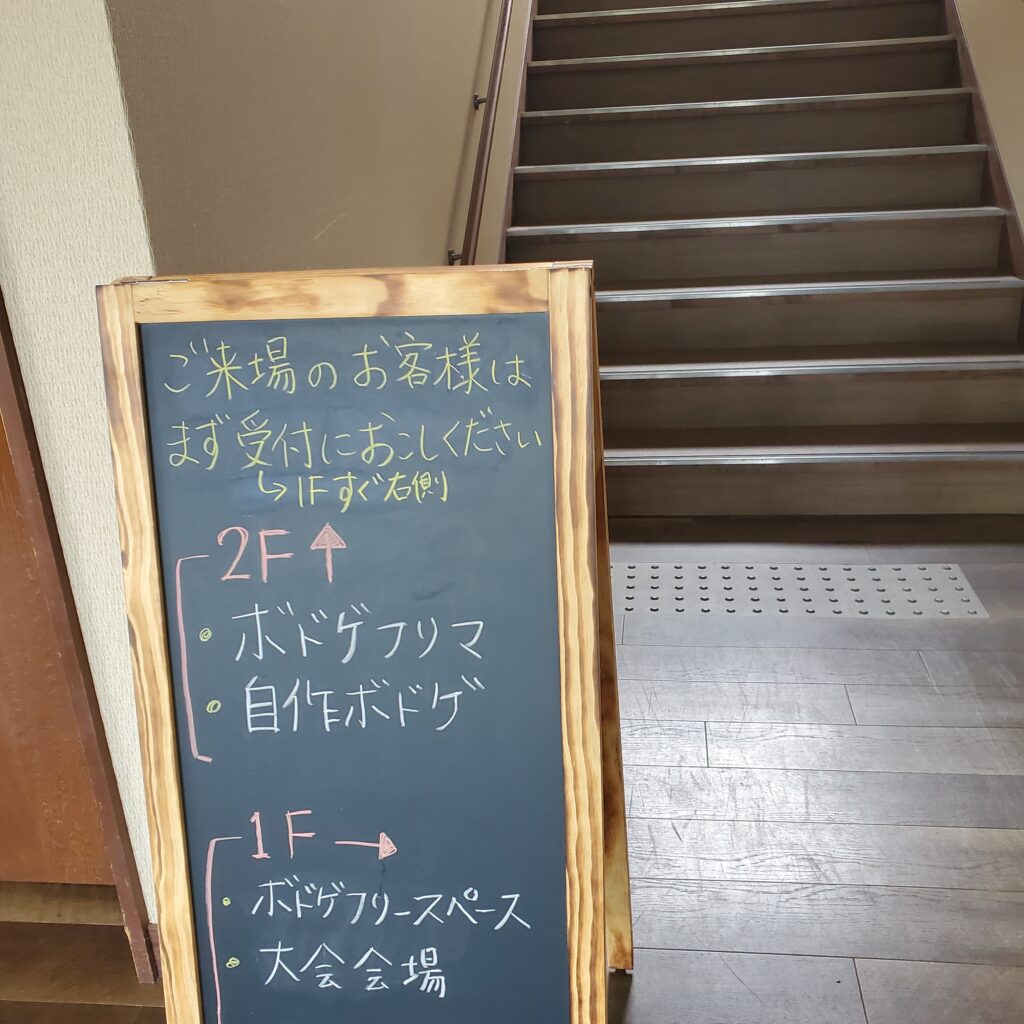 ご来場のお客様は
まず受付におこしください
↳1Fすぐ右側
2F↑
・ボドゲフリマ
・自作ボドゲ
1F→
・ボドゲフリースペース
・大会会場